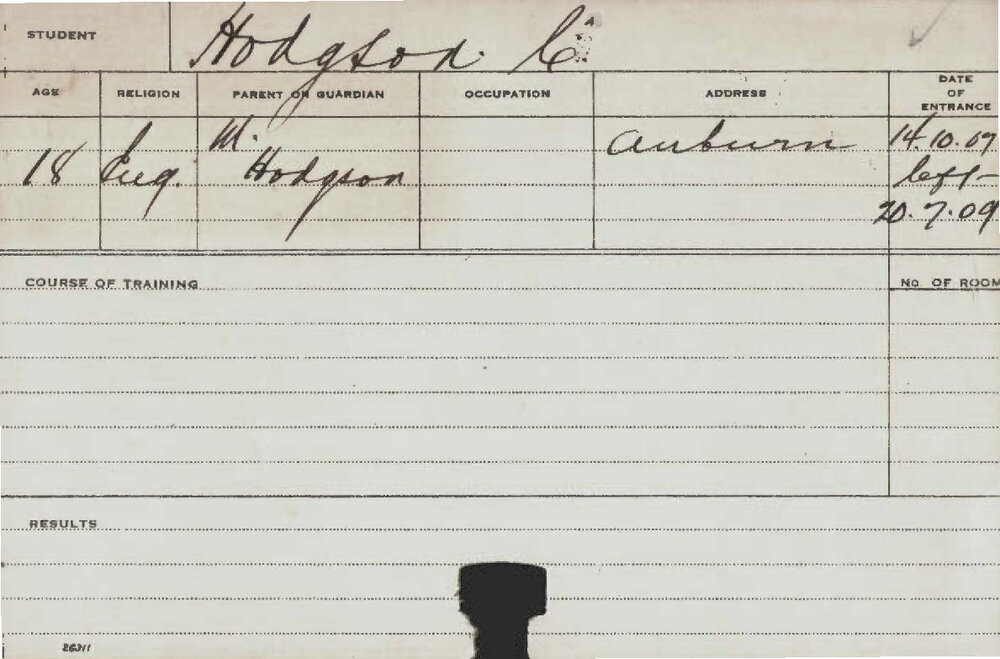 STUDENT Hodgson. C.
AGE RELIGION PARENT OR GUARDIAN OCCUPATION ADDRESS DATE OF ENTRANCE
18 Eng. M. Hodgson Auburn 14.10.07
left-
20.7.09
COURSE OF TRAINING No. OF ROOM
RESULTS
26311